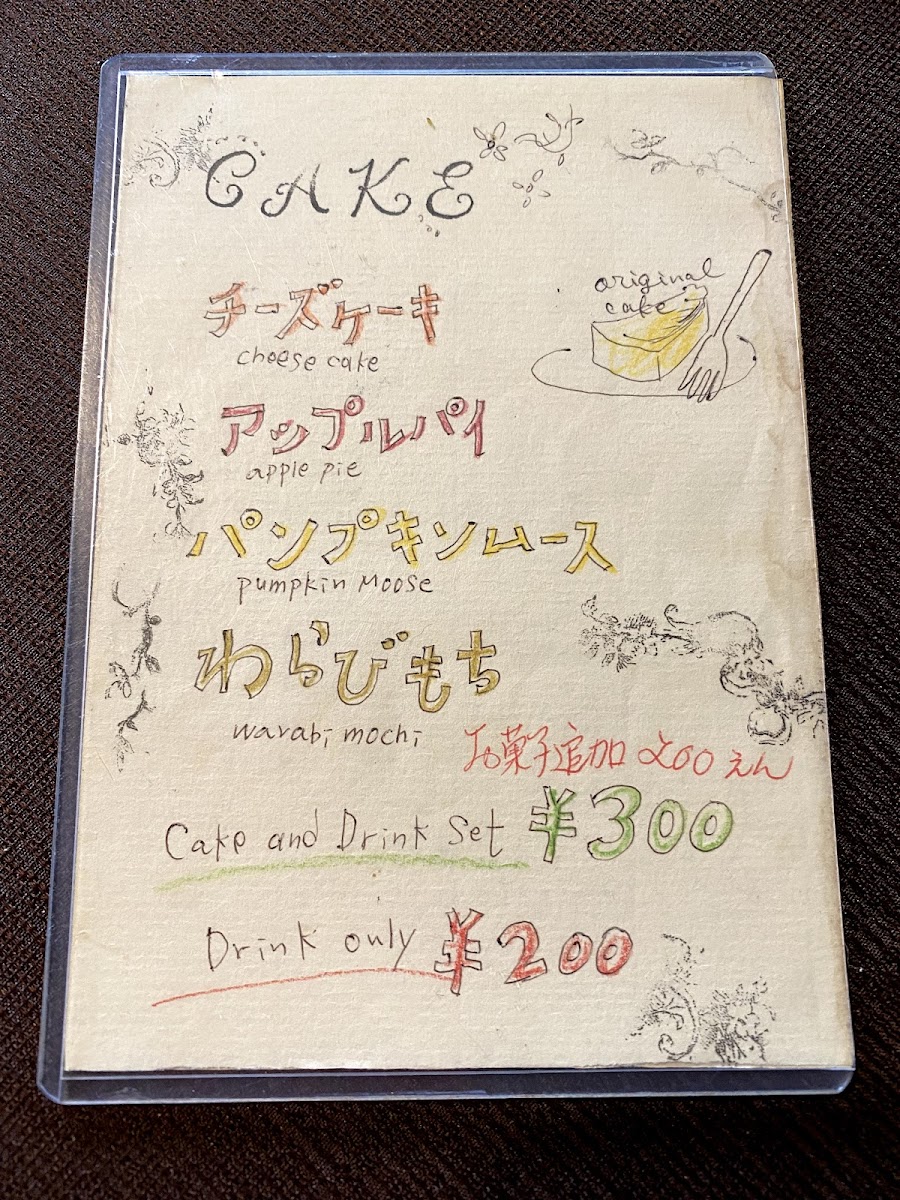 CAKE
original
cake
チーズケーキ
cheese cake
アップルパイ
apple pie
パンプキンムース
pumpkin Moose
わらびもち
warabi mochi
お菓子追加 200えん
Cake and Drink Set ¥300
Drink only ¥200